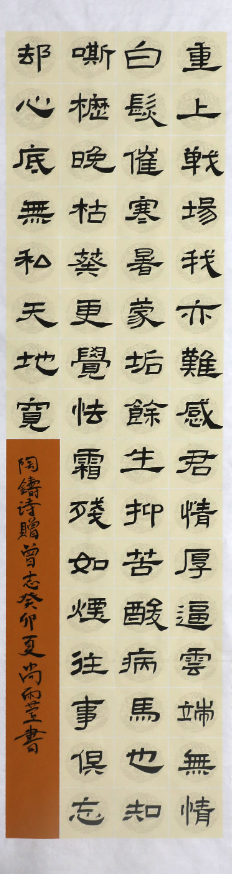 重上戰場我亦難感君情厚逼雲端無情
白髮催寒暑蒙垢餘生抑苦酸病馬也知
嘶櫪晚枯葵更覺怯霜殘如煙往事俱忘
却心底無私天地寬
陶鑄詩贈曾志癸卯夏尚雨萱書